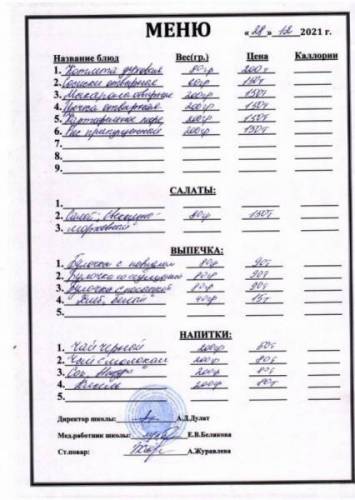 МЕНЮ «28» 12 2021 г.
Название блюд Вес(гр.) Цена Каллории
1. Котлета куровая 80гр 200т
2. Сосиски отварные 60гр 150т
3. Макароны отварные 200гр 150т
4. Гречка отварная 200гр 150т
5. Картофельное пюре 200гр 150т
6. Рис припущенный 200гр 150т
7.
8.
9.
САЛАТЫ:
1.
2. Салат: Свекольно- 80гр 130т
3. морковный
ВЫПЕЧКА:
1. Булочка с повидлом 80гр 90т
2. Булочка со сгущенкой 80гр 90т
3. Булочка с сосиской 80гр 90т
4. Хлеб белый 40гр 15т
5.
НАПИТКИ:
1. Чай черный 200гр 60т
2. Чай с молоком 200гр 80т
3. Сок 200гр 80т
4. Кисель 200гр 80т
5.
Директор школы: А.Д.Дулат
Мед.работник школы: Е.В.Белякова
Ст.повар: А.Журавлева